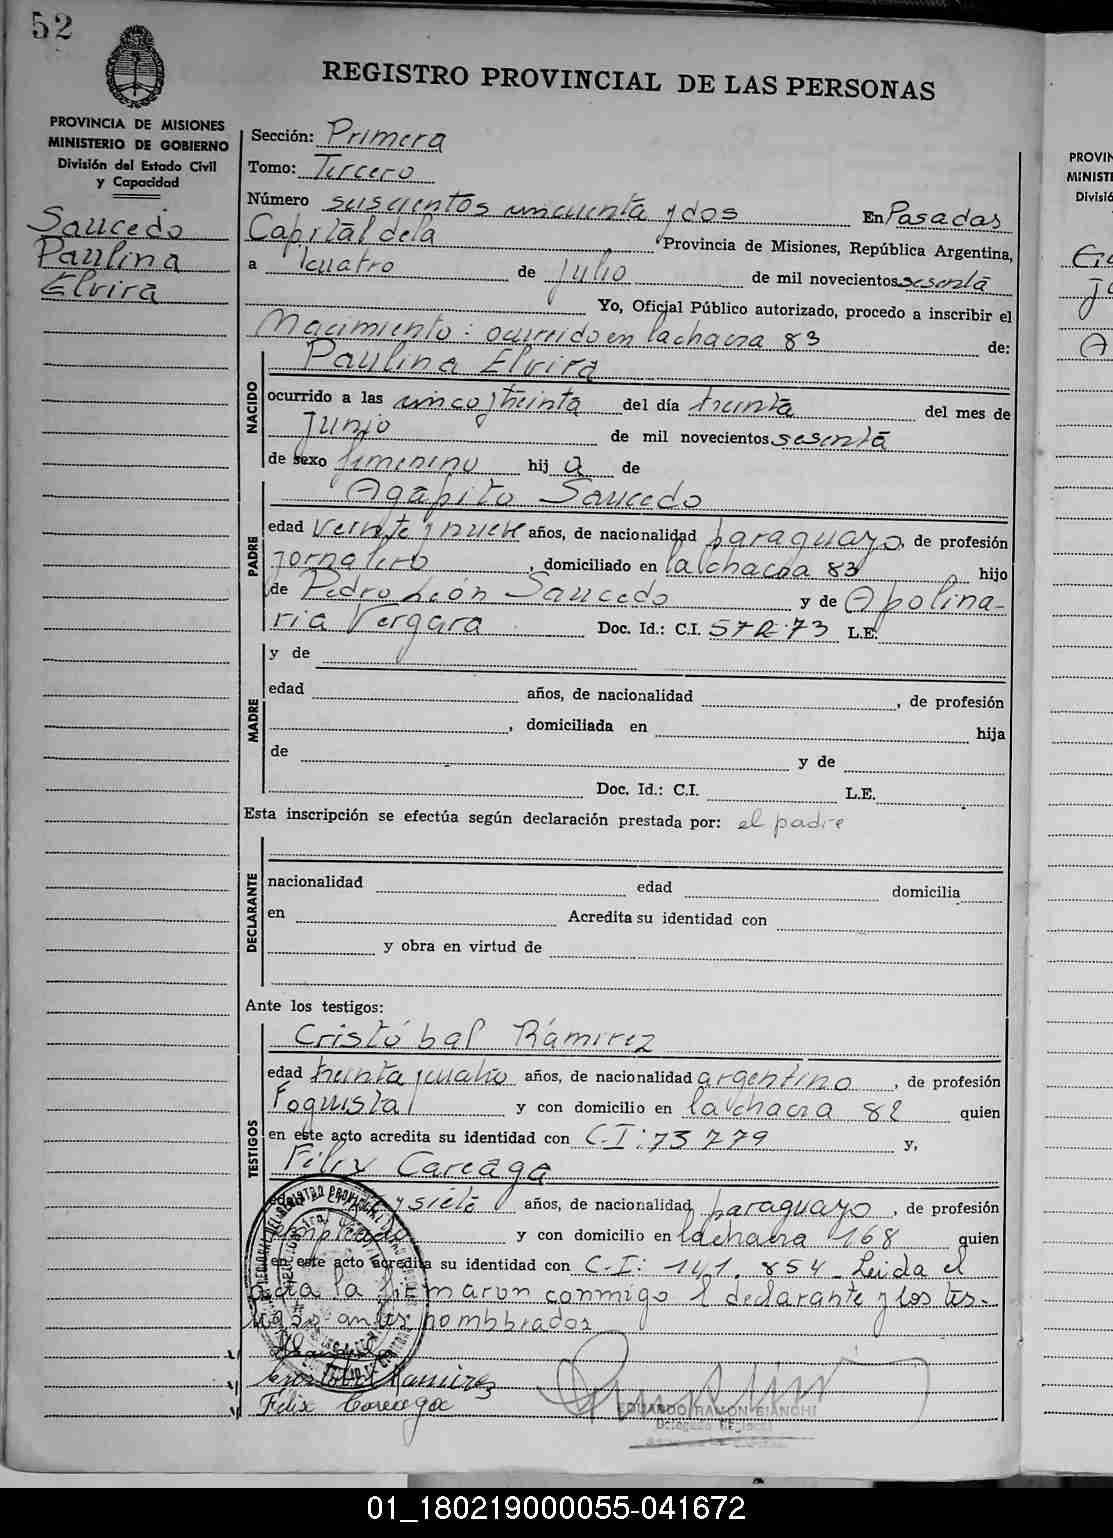 52
REGISTRO PROVINCIAL DE LAS PERSONAS
PROVINCIA DE MISIONES
MINISTERIO DE GOBIERNO
División del Estado Civil
y Capacidad
Saucedo
Paulina
Elvira
Sección: Primera
Tomo: Tercero
Número seiscientos cincuenta y dos En Posadas
Capital de la Provincia de Misiones, República Argentina,
a cuatro de Julio de mil novecientos sesenta
Yo, Oficial Público autorizado, procedo a inscribir el
Nacimiento: ocurrido en la chacra 83 de:
NACIDO
Paulina Elvira
ocurrido a las cinco y treinta del día treinta del mes de
Junio de mil novecientos sesenta
de sexo femenino hij a de
PADRE
Agapito Saucedo
edad veinte y nueve años, de nacionalidad paraguayo, de profesión
jornalero, domiciliado en la chacra 83 hijo
de Pedro León Saucedo y de Apolina-
ria Vergara Doc. Id.: C.I. L.E.
MADRE
y de
edad años, de nacionalidad , de profesión
, domiciliada en hija
de y de
Doc. Id.: C.I. L.E.
Esta inscripción se efectúa según declaración prestada por: el padre
DECLARANTE
nacionalidad edad domicilia
en Acredita su identidad con
y obra en virtud de
Ante los testigos:
TESTIGOS
Cristóbal Rámirez
edad treinta y cuatro años, de nacionalidad argentino, de profesión
Foguista y con domicilio en la chacra 82 quien
en este acto acredita su identidad con C.I: 73779 y,
Félix Careaga
y siete años, de nacionalidad paraguayo, de profesión
empleado y con domicilio en la chacra 168 quien
en este acto acredita su identidad con C.I: 141.854 Leída el
acta la firmaron conmigo el declarante y los tes-
tigos antes nombbrados
Cristobal Ramirez
Félix Careaga
EDUARDO RAMON BIANCHI
PROVIN
MINISTE
Divisió
01_180219000055-041672